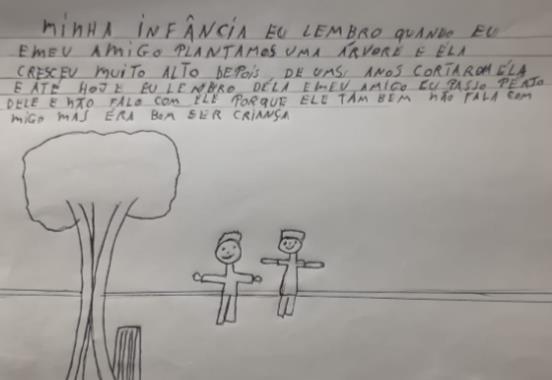 MINHA INFÂNCIA EU LEMBRO QUANDO EU
E MEU AMIGO PLANTAMOS UMA ÁRVORE E ELA
CRESCEU MUITO ALTO DEPOIS DE UMS ANOS CORTAROM ELA
E ATÉ HOJE EU LEMBRO DELA E MEU AMIGO EU PASSO PERTO
DELE E NÃO FALO COM ELE PORQUE ELE TAM BEM NÃO FALA COM
MIGO MAS ERA BOM SER CRIANÇA